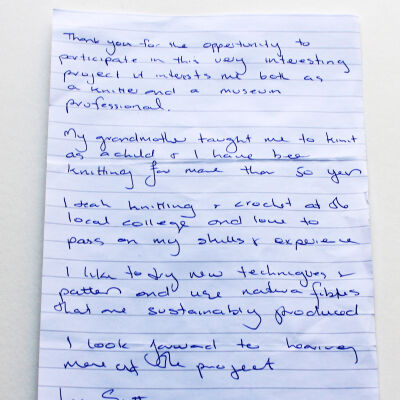 Thank you for the opportunity to
participate in this very interesting
project it interests me both as
a knitter and a museum
professional.
My grandmother taught me to knit
as a child & I have bee
knitting for more than 50 year
I teach knitting & crochet at the
local college and love to
pass on my skills & experience
I like to try new techniques &
patter and use natura fibres
that are sustainably produced
I look forward to hearing
more of the project